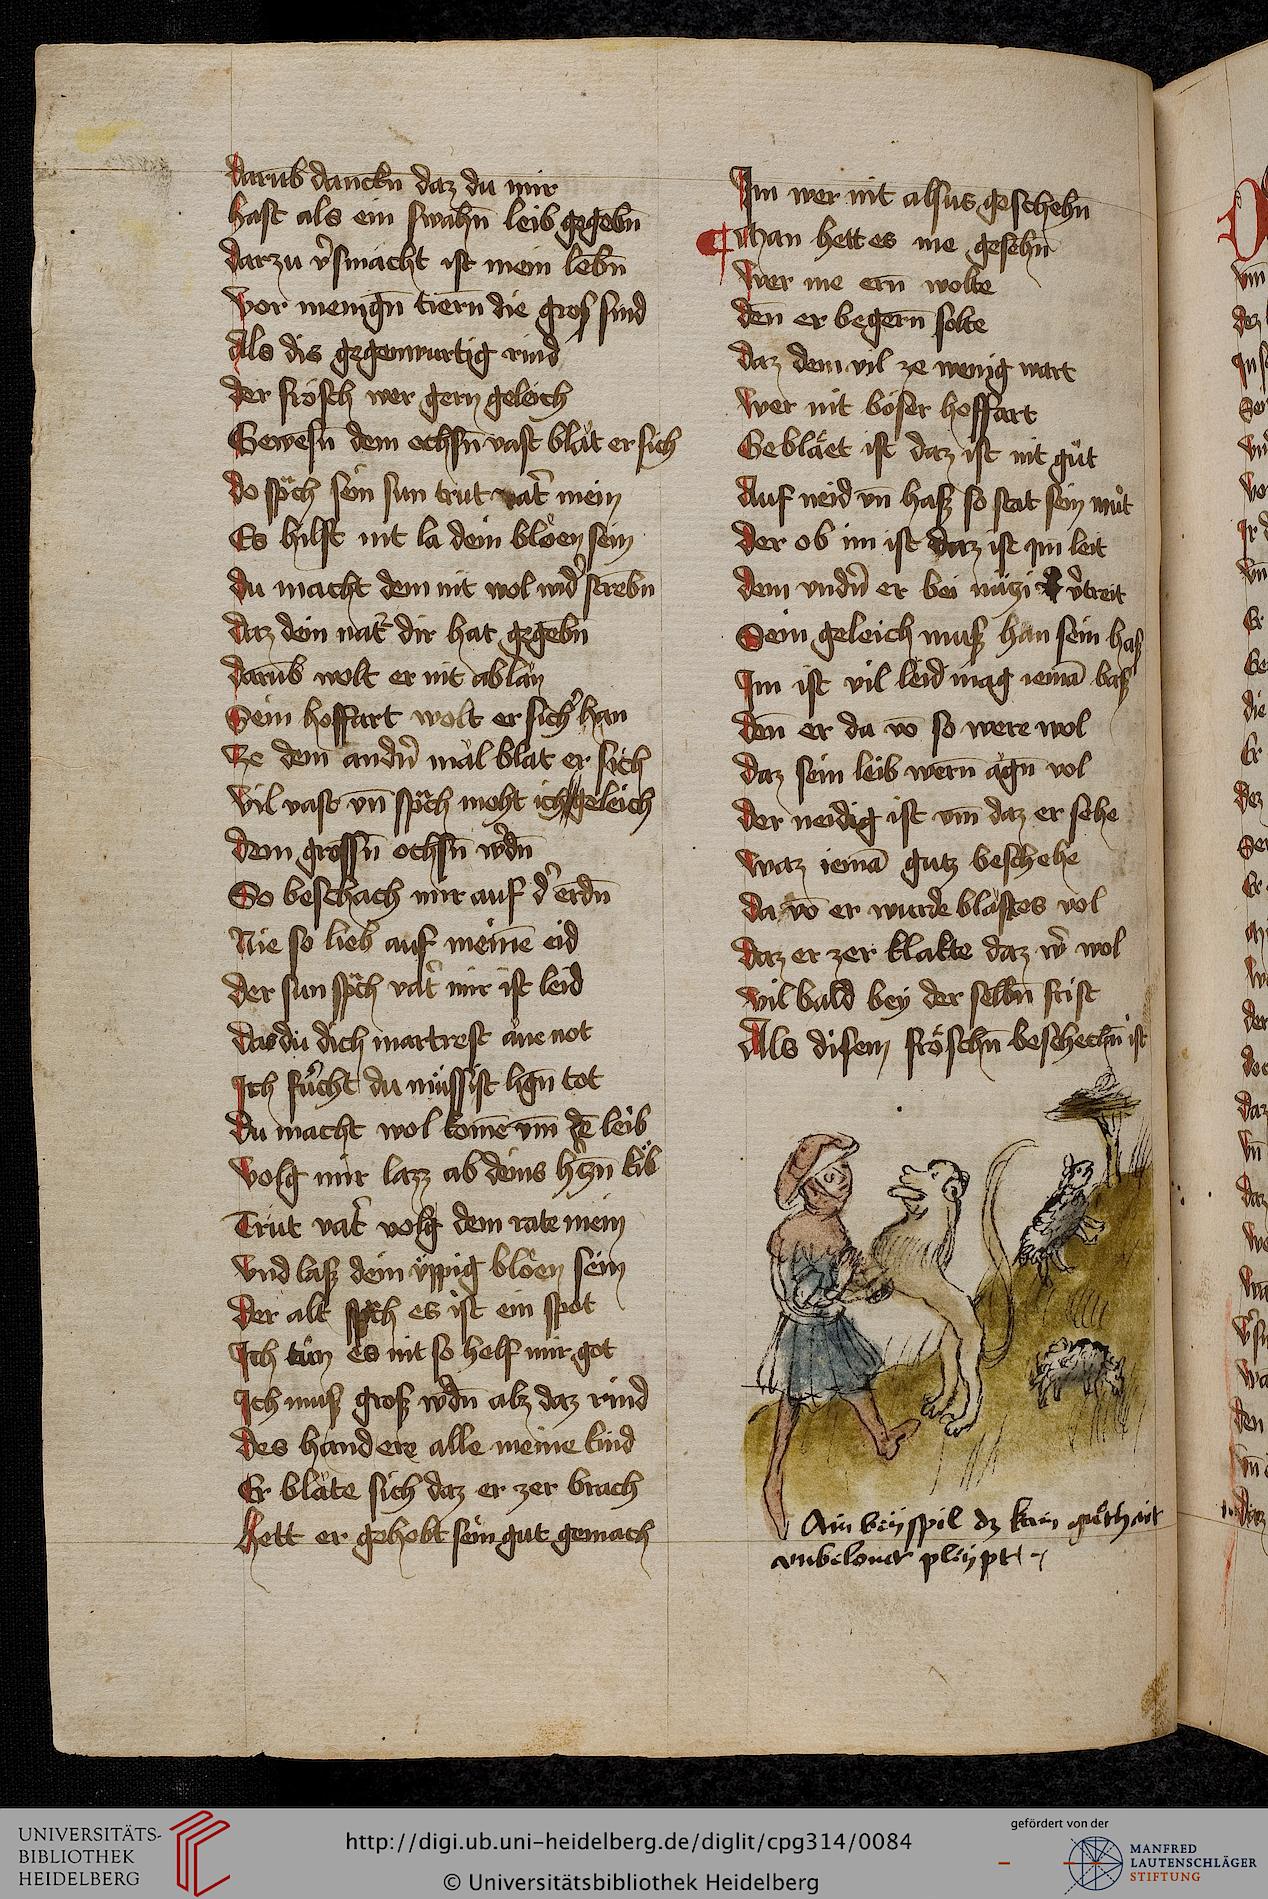 darūb danckn̄ daz du mir
hast als ein swahn̄ leib gegebn̄
darzu v̉smächt ist mein lebn̄
Vor menign̄ tiern̄ die gros sind
Als dis gegenwurtig rind
der frosch wer gern geleich
Gewesn̄ dem ochsn̄ vast blat er sich
do sp̊ch sein sun trut vat̉ mein
Es hilft nit la dein bloen sein
du macht dem nit wol wid̉ strebn̄
daz dein nat̉ dir hat gegebn̄
darūb wolt er nit ablan
Sein hoffart wolt er sich̉ han
Ze dem andn̉ mal blat er sich
Vil vast vn̄ sp̊ch moht ich geleich
dem grossn̄ ochsn̄ w̉dn̄
So beschach mir auf d̉ erdn̄
Nie so lieb auf meinē eid
der sun sp̊ch vat̉ mir ist leid
daz du dich martrest ane not
Ich fu̇rcht du mu̇ssist lign̄ tot
Du macht wol komē vm̄ dē leib
volg mir lazz ab deins h̉tzn̄ kib
Trut vat̉ volg dem rate mein
Vnd lasz dein u̇ppig bloen sein
Der alt sp̊ch es ist ein spot
Ich tůn es nit so helf mir got
Ich musz grosz w̉dn̄ alz daz rind
des hand ere alle meine kind
Er blate sich daz er zer brach
Hett er gehebt sein gut gemach
Im wer nit alsus geschehn̄
Man hett es me gesehn̄
Wer me ern̄ wolte
den̄ er begern̄ solte
daz dem vil ze wenig wart
Wer nit boser hoffart
Geblaͤet ist daz ist nit gůt
Auf neid vn̄ hasz so stat sein můt
der ob im ist daz ist im leit
dem vndn̉ er bei v̉treit
Sein geleich musz han sein hasz
Im ist vil leid mag iemā basz
den̄ er da vō so were wol
daz sein leib wern̄ agn vol
der neidig ist vm̄ daz er sehe
waz iemā gutz beschehe
da vō er wurde blastes vol
daz er zer klakte daz w̉ wol
vil bald bey der selbn̄ frist
Als disem froschn̄ beschechn̄ ist
Ain beyspil dz kain